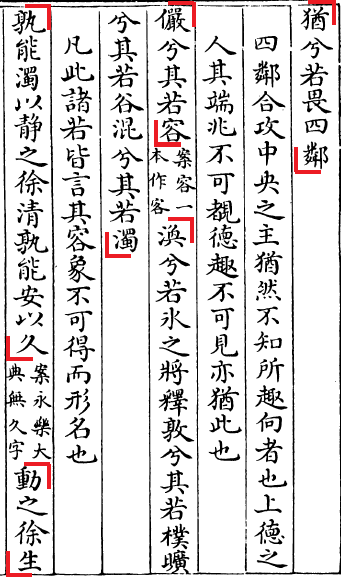 猶兮若畏四鄰
四鄰合攻中央之主猶然不知所趣向者也上德之
人其端兆不可覩德趣不可見亦猶此也
儼兮其若容案容一本作客渙兮若氷之將釋敦兮其若樸曠
兮其若谷混兮其若濁
凡此諸若皆言其容象不可得而形名也
孰能濁以静之徐清孰能安以久案永樂大典無久字動之徐生